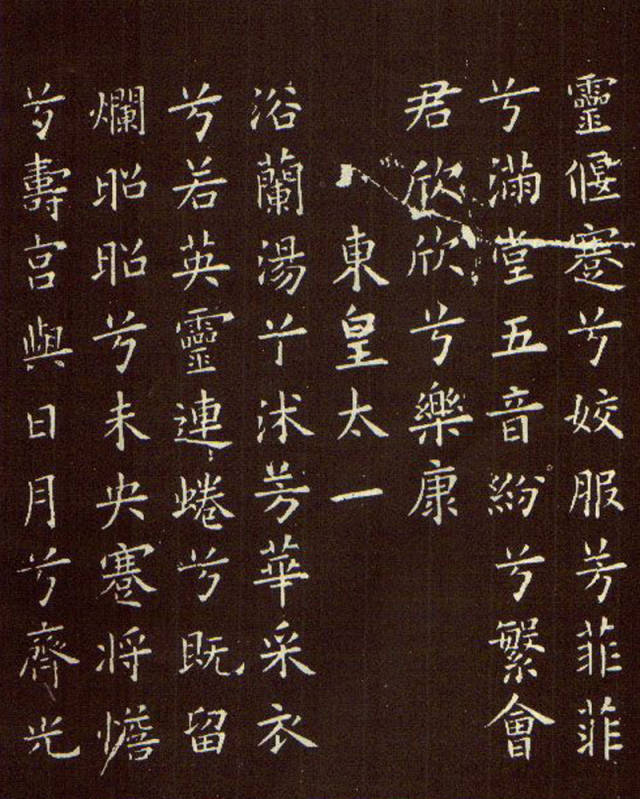 靈偃蹇兮姣服芳菲菲
兮滿堂五音紛兮繁會
君欣欣兮樂康
東皇太一
浴蘭湯兮沐芳華采衣
兮若英靈連蜷兮既留
爛昭昭兮未央蹇將憺
兮壽宮與日月兮齊光